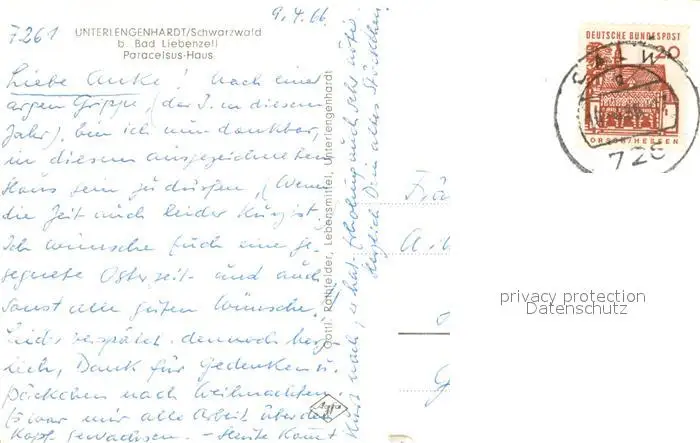 9.4.66
7261 UNTERLENGENHARDT/Schwarzwald
b. Bad Liebenzell
Paracelsus-Haus
Liebe Anke! Nach einer
argen Grippe, (der 3. in diesem
Jahr), bin ich nun dankbar,
in diesem ausgezeichneten
Haus sein zu dürfen, (Wenn
die Zeit auch leider kurz ist.
Ich wünsche Euch eine ge-
segnete Osterzeit und auch
sonst alle guten Wünsche!
Leider verspätet, dennoch herz-
lich, Dank für Gedenken u.
Päckchen nach Weihnachten.
Es war mir alle Arbeit über den
Kopf gewachsen. - Heute kommt
Kurt nach, er hat Erholung auch sehr nötig.
Herzlich Deine altes
Gottl. Rothfelder, Lebensmittel, Unterlengenhardt
Agfa
DEUTSCHE BUNDESPOST
20
LORSCH/HESSEN
CALW
726
privacy protection
Datenschutz